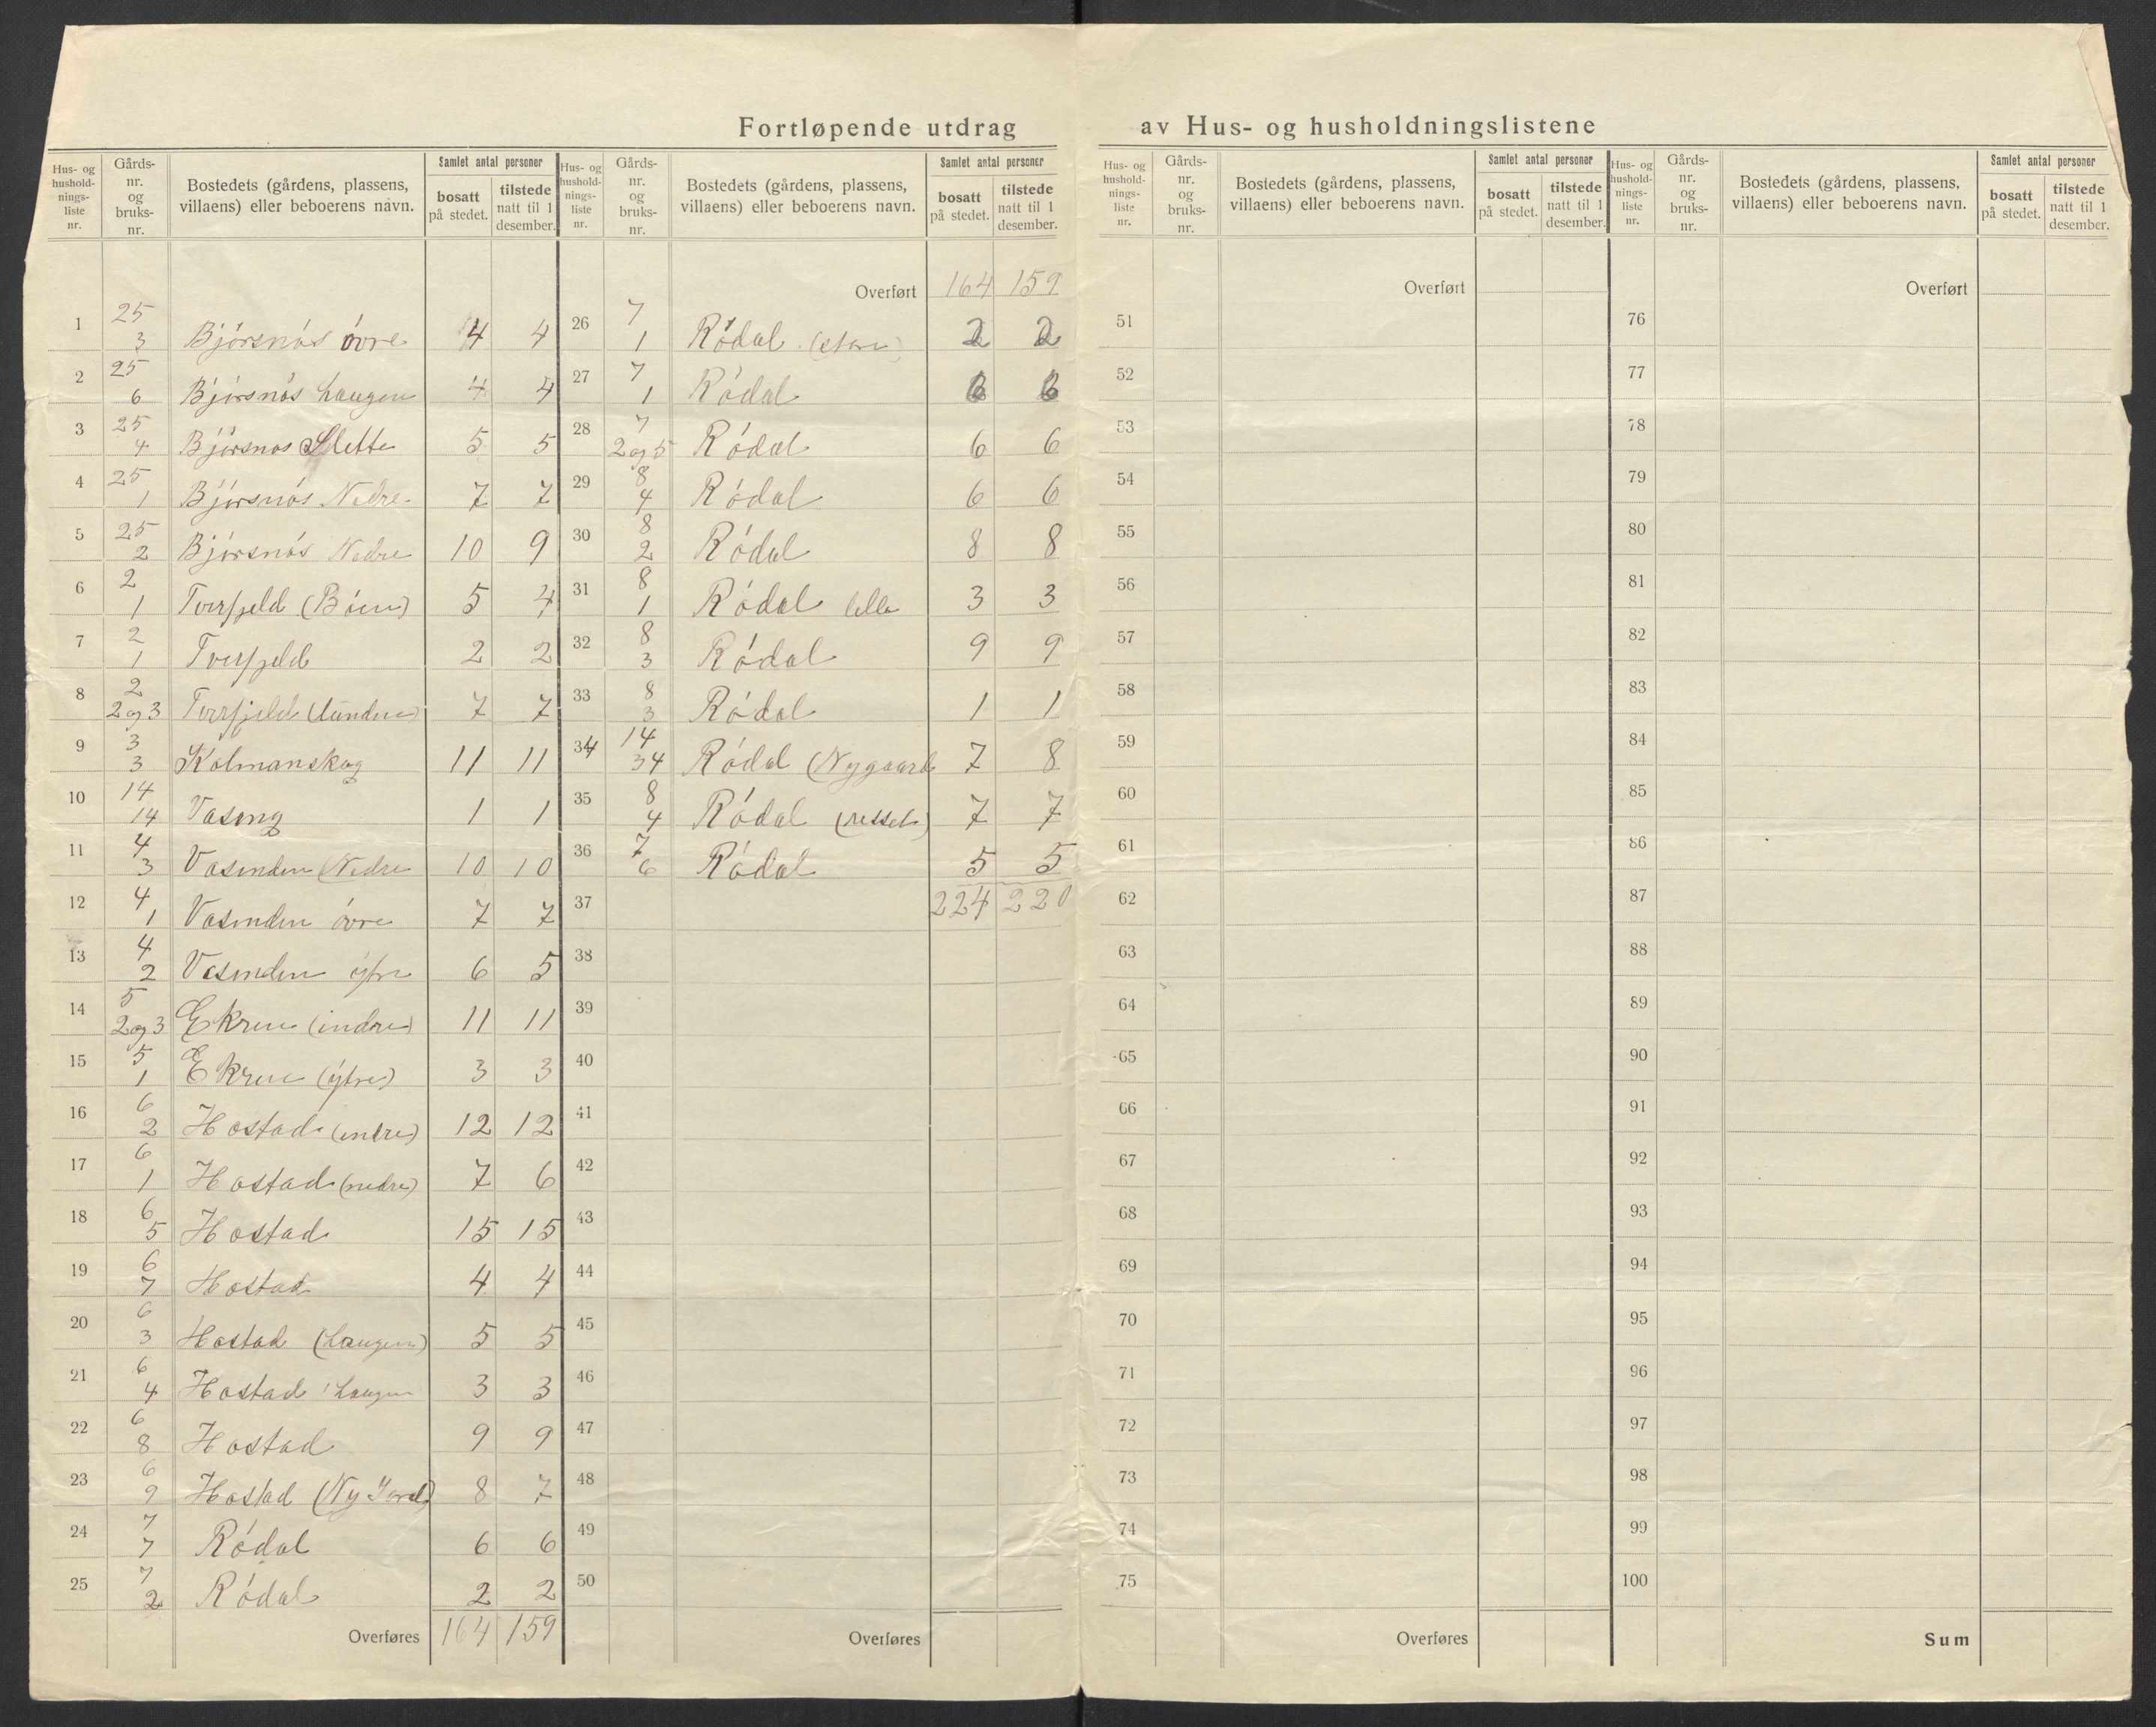 Fortløpende utdrag av Hus- og husholdningslistene
Hus- og husholdnings-liste nr. Gårds-nr. og bruks-nr. Bostedets (gårdens, plassens, villaens) eller beboerens navn. Samlet antal personer bosatt på stedet. tilstede natt til 1 desember.
1 25 3 Bjørsnøs øvre 4 4
2 25 6 Bjørsnøs haugen 4 4
3 25 4 Bjørsnøs Slette 5 5
4 25 1 Bjørsnøs Nedre 7 7
5 25 2 Bjørsnøs Nedre 10 9
6 2 1 Tverfjeld (Bøen) 5 4
7 2 1 Tverfjeld 2 2
8 2 2 og 3 Tverfjeld 7 7
9 3 3 Kolmanskog 11 11
10 14 14 1 1
11 4 3 Vasenden (Nedre 10 10
12 4 1 Vasenden øvre 7 7
13 4 2 Vasenden ytre 6 5
14 5 2 og 3 Ekren (indre) 11 11
15 5 1 Ekren (ytre) 3 3
16 6 2 Hostad (indre) 12 12
17 6 1 Hostad (nedre) 7 6
18 6 5 Hostad 15 15
19 6 7 Hostad 4 4
20 6 3 Hostad (haugen) 5 5
21 6 4 Hostad haugen 3 3
22 6 8 Hostad 9 9
23 6 9 Hostad (Ny Jord) 8 7
24 7 7 Rødal 6 6
25 7 2 Rødal 2 2
Overføres 164 159
Hus- og husholdnings-liste nr. Gårds-nr. og bruks-nr. Bostedets (gårdens, plassens, villaens) eller beboerens navn. Samlet antal personer bosatt på stedet. tilstede natt til 1 desember.
Overført 164 159
26 7 1 Rødal 2 2
27 7 1 Rødal 6 6
28 7 2 og 5 Rødal 6 6
29 8 4 Rødal 6 6
30 8 2 Rødal 8 8
31 8 1 Rødal lille 3 3
32 8 3 Rødal 9 9
33 8 3 Rødal 1 1
34 14 34 Rødal (Nygaard 7 8
35 8 4 Rødal 7 7
36 7 6 Rødal 5 5
37 224 220
38
39
40
41
42
43
44
45
46
47
48
49
50
Overføres
Hus- og husholdnings-liste nr. Gårds-nr. og bruks-nr. Bostedets (gårdens, plassens, villaens) eller beboerens navn. Samlet antal personer bosatt på stedet. tilstede natt til 1 desember.
Overført
51
52
53
54
55
56
57
58
59
60
61
62
63
64
65
66
67
68
69
70
71
72
73
74
75
Overføres
Hus- og husholdnings-liste nr. Gårds-nr. og bruks-nr. Bostedets (gårdens, plassens, villaens) eller beboerens navn. Samlet antal personer bosatt på stedet. tilstede natt til 1 desember.
Overført
76
77
78
79
80
81
82
83
84
85
86
87
88
89
90
91
92
93
94
95
96
97
98
99
100
Sum